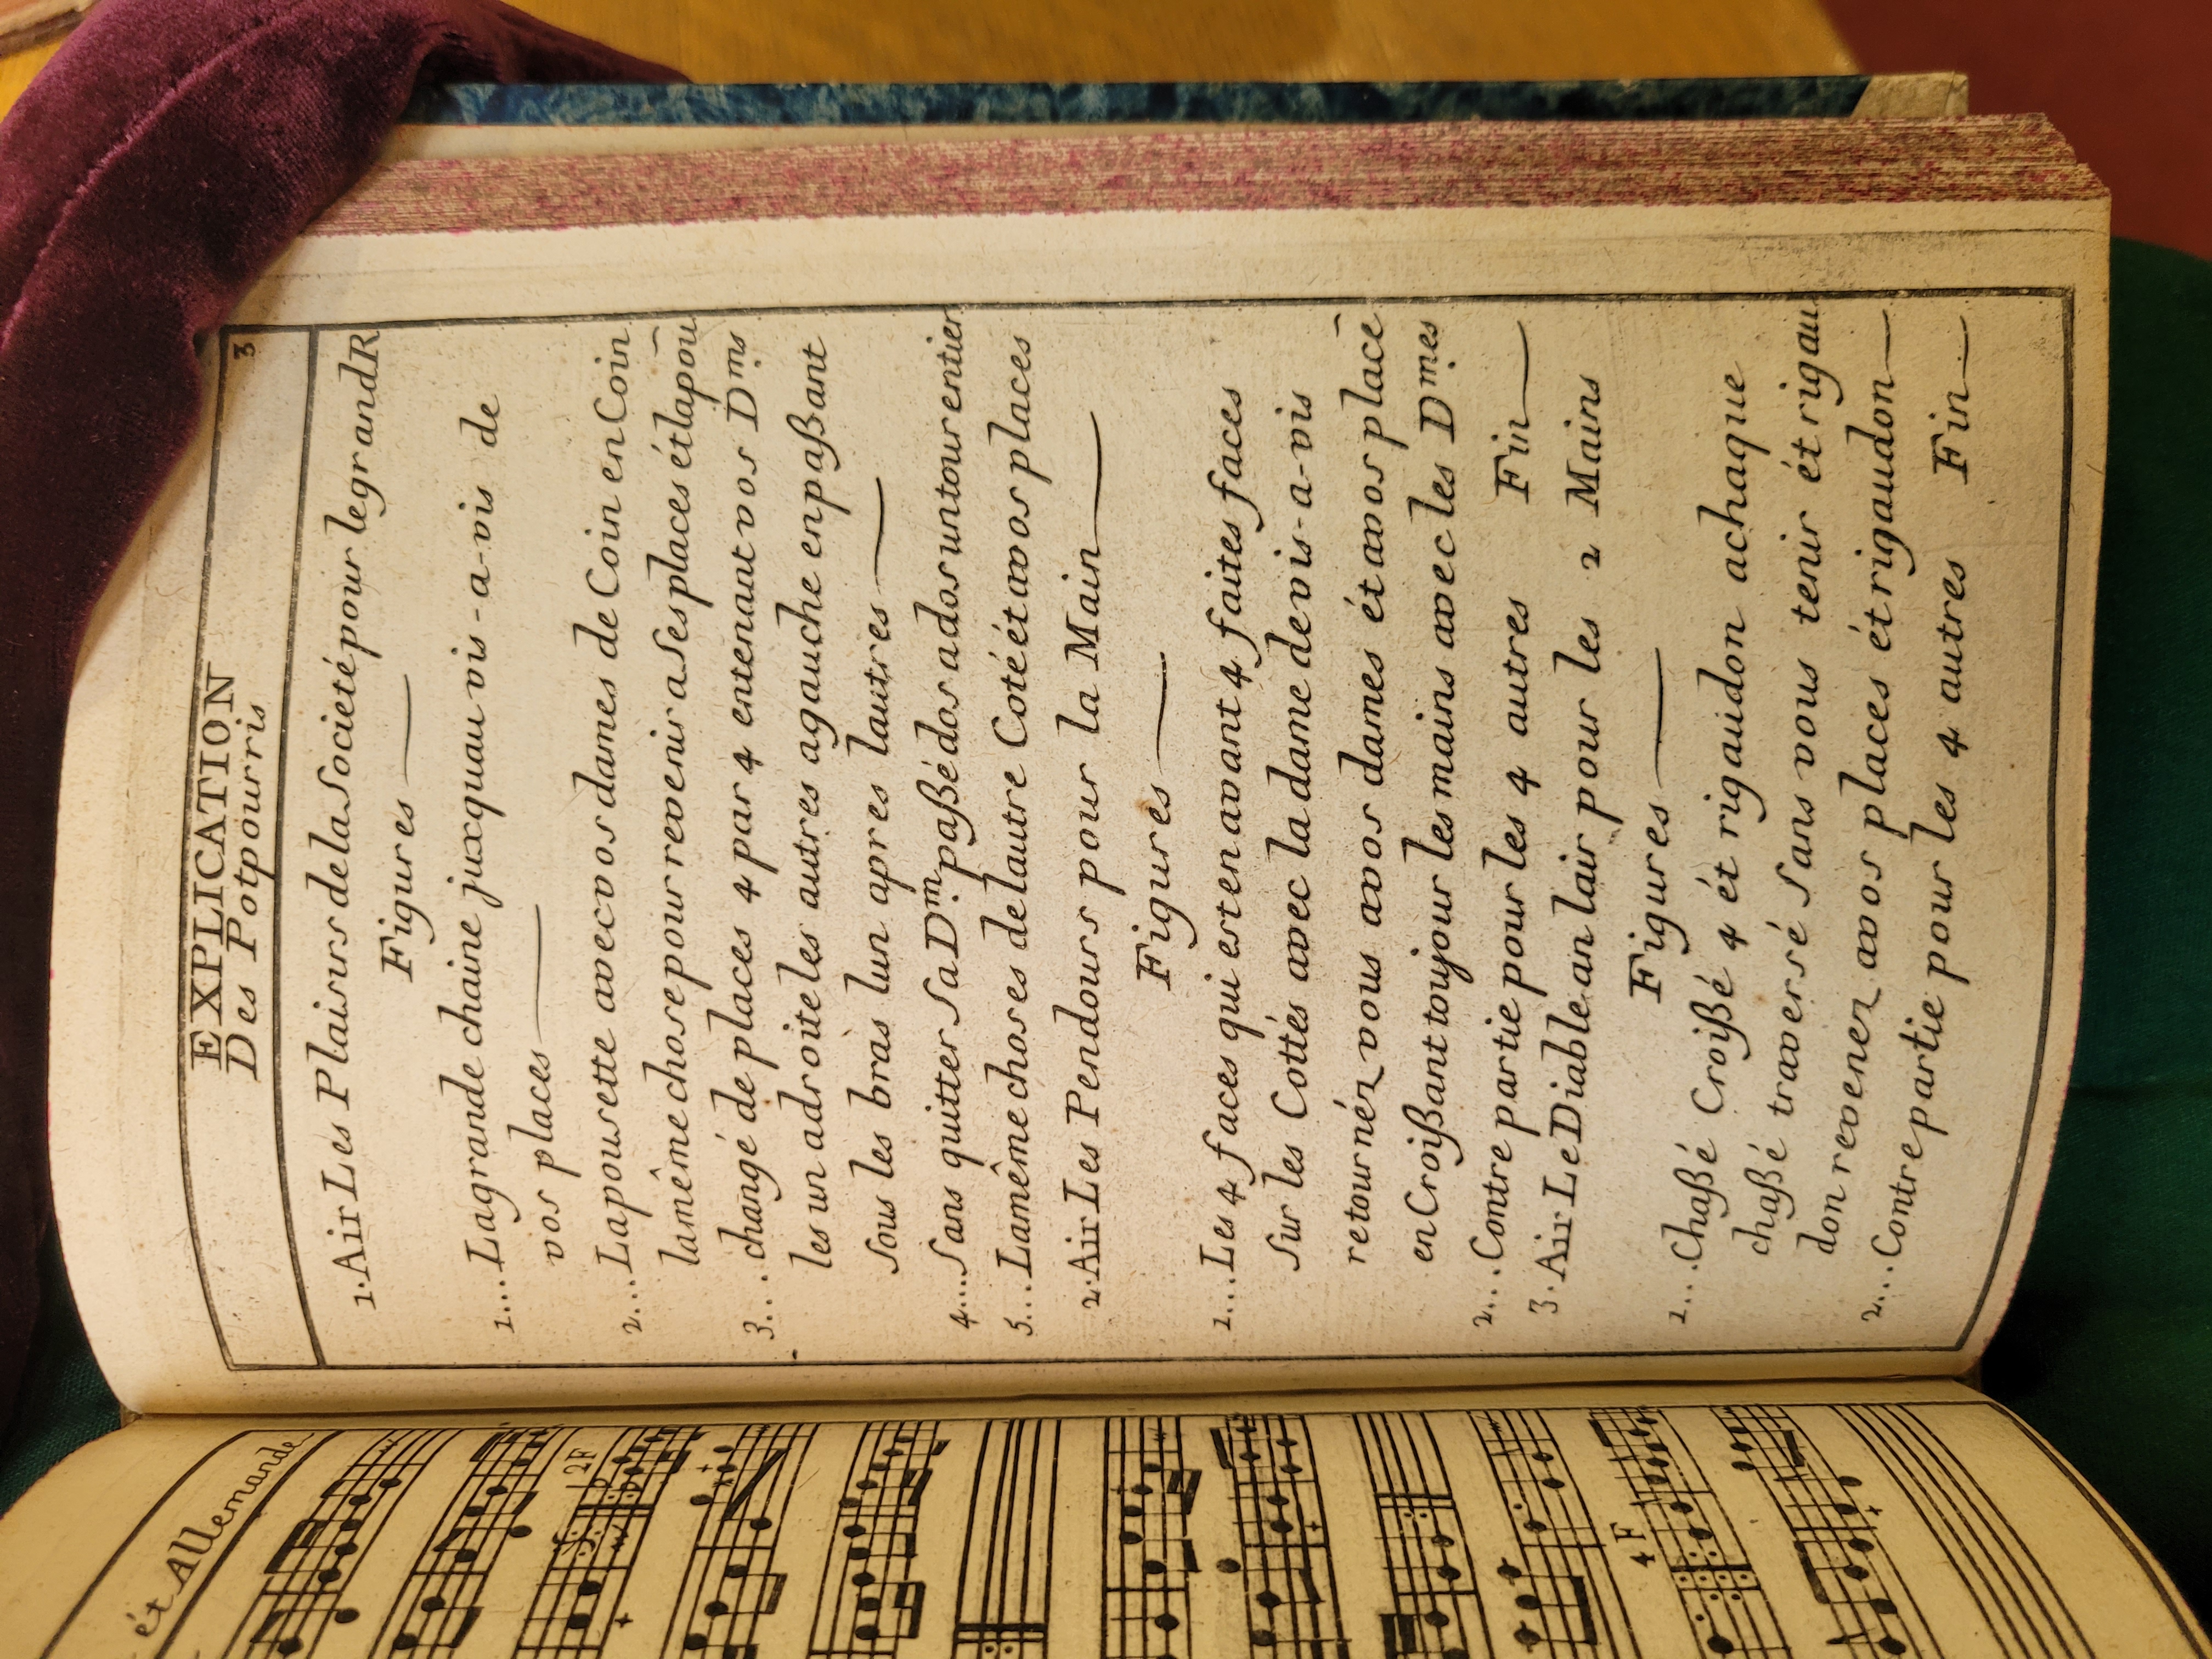 3
EXPLICATION
Des Potpourris
1. Air Les Plaisirs de la Societé pour le grand R
Figures
1... La grande chaine juxquau vis-a-vis de
vos places
2... La pousette avec vos dames de Coin en Coin
la même chose pour revenir a ses places ét la pou
3... changé de places 4 par 4 en tenant vos Dms
les un a droite les autres a gauche en paßant
sous les bras lun apres lautres
4... Sans quitter Sa Dm paßé dos a dos un tour entier
5... La même choses de lautre Coté ét a vos places
2. Air Les Pendours pour la Main
Figures
1... Les 4 faces qui est en avant 4 faites faces
Sur les Cottés avec la dame de vis-a-vis
retournéz vous a vos dames ét a vos place
en Croißant toujour les mains avec les Dmes
2... Contre partie pour les 4 autres Fin
3. Air Le Diable an lair pour les 2 Mains
Figures
1... Chaßé Croißé 4 ét rigaudon a chaque
chaßé traversé Sans vous tenir ét rigau
don revenez a vos places ét rigaudon
2... Contre partie pour les 4 autres Fin
ét Allemande
2F
4F